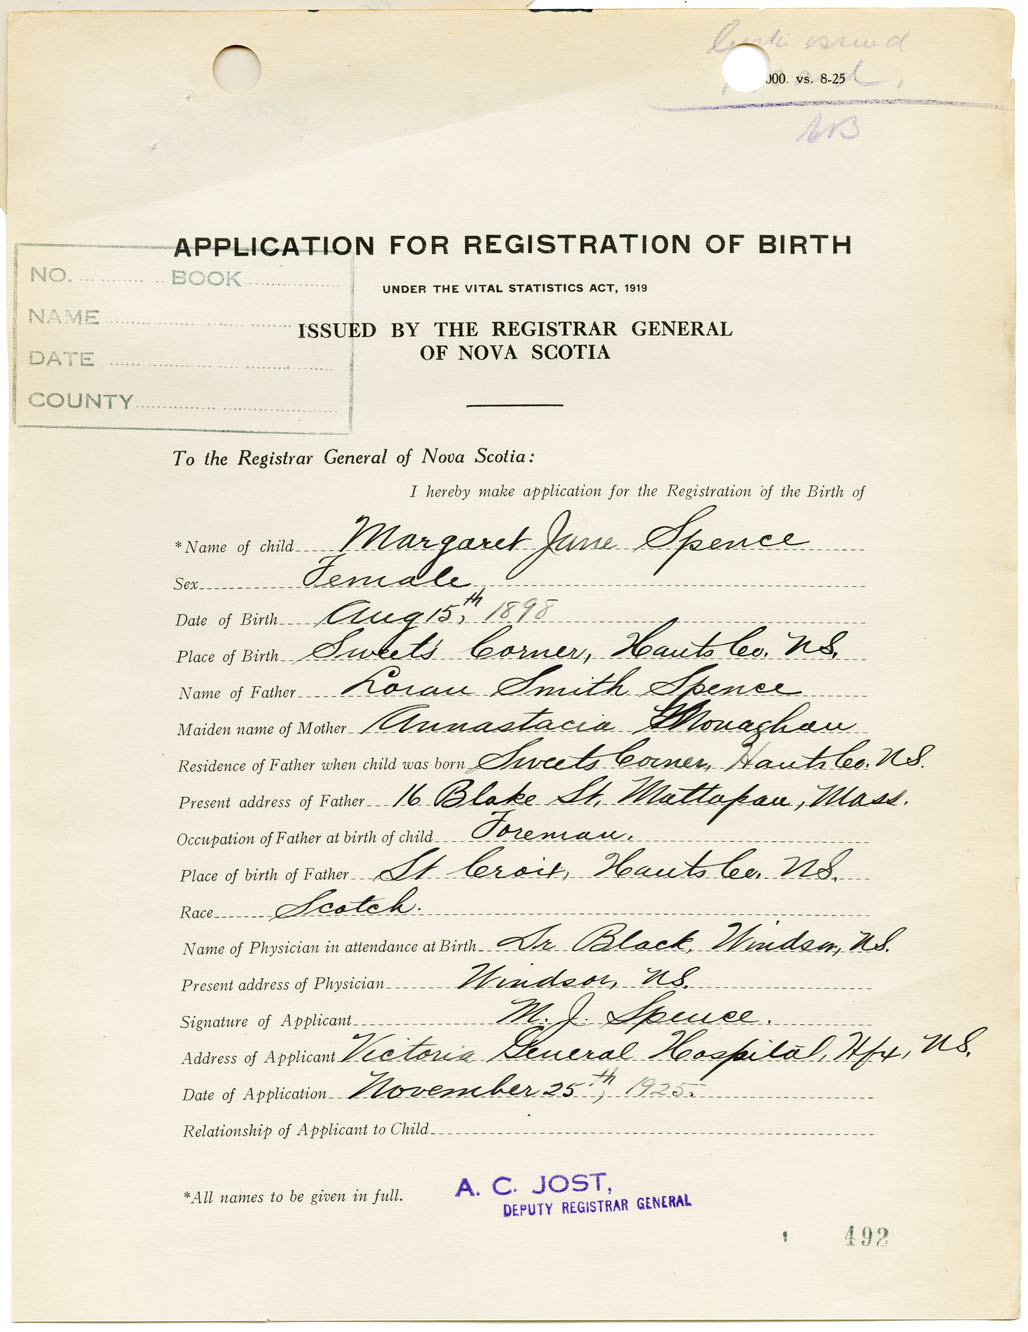 issued
000. vs. 8-25
APPLICATION FOR REGISTRATION OF BIRTH
NO. ............ BOOK ............
UNDER THE VITAL STATISTICS ACT, 1919
NAME ............
ISSUED BY THE REGISTRAR GENERAL
OF NOVA SCOTIA
DATE ............
COUNTY ............
To the Registrar General of Nova Scotia:
I hereby make application for the Registration of the Birth of
*Name of child Margaret Jane Spence
Sex Female
Date of Birth Aug 15th, 1898
Place of Birth Sweet's Corner, Hants Co. N.S.
Name of Father Loran Smith Spence
Maiden name of Mother Annastacia Monaghan
Residence of Father when child was born Sweets Corner, Hants Co. N.S.
Present address of Father 16 Blake St, Mattapan, Mass.
Occupation of Father at birth of child Foreman.
Place of birth of Father St Croix, Hants Co. N.S.
Race Scotch.
Name of Physician in attendance at Birth Dr Black, Windsor, N.S.
Present address of Physician Windsor, N.S.
Signature of Applicant M. J. Spence.
Address of Applicant Victoria General Hospital, Hfx, N.S.
Date of Application November 25th, 1925.
Relationship of Applicant to Child
*All names to be given in full.
A. C. JOST,
DEPUTY REGISTRAR GENERAL
492